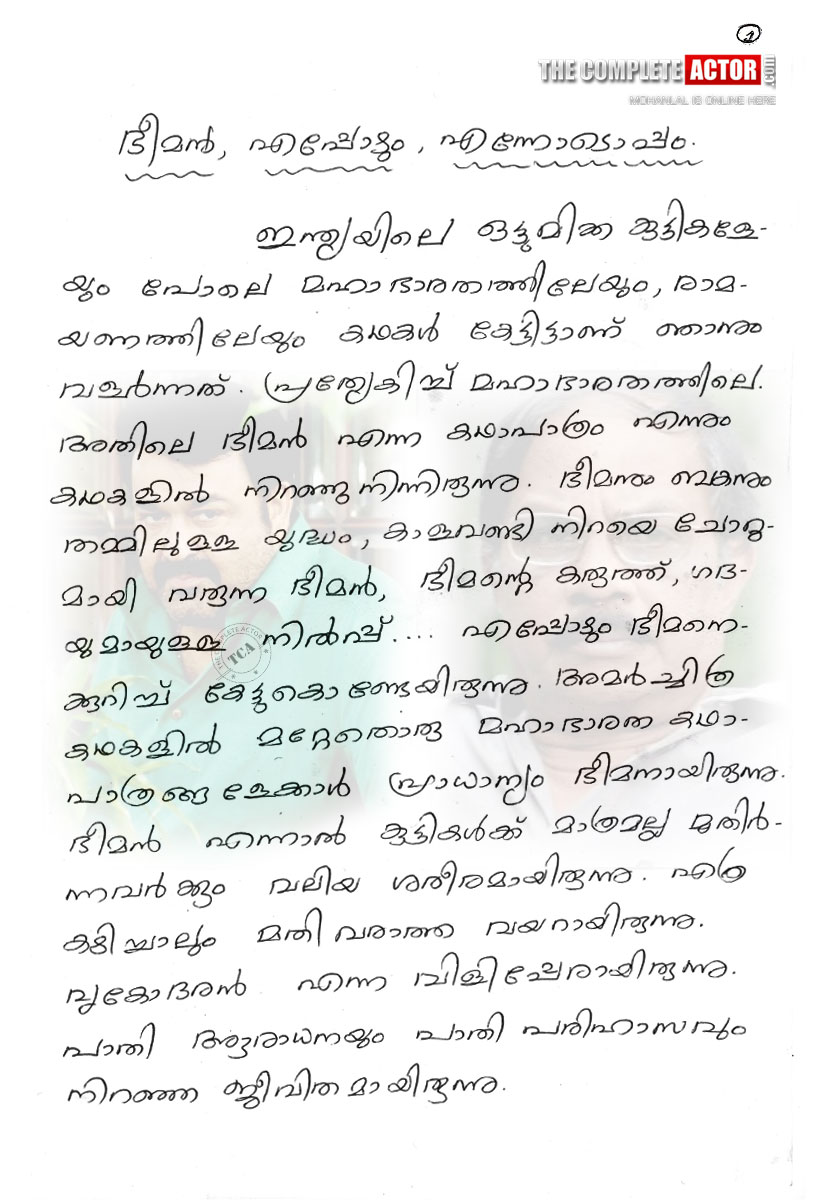 1
THE COMPLETE ACTOR .COM
MOHANLAL IS ONLINE HERE
ഭീമൻ, എപ്പോഴും, എന്നോടൊപ്പം.
ഇന്ത്യയിലെ ഒട്ടുമിക്ക കുട്ടികളേ-
യും പോലെ മഹാഭാരതത്തിലേയും, രാമ-
യണത്തിലേയും കഥകൾ കേട്ടിട്ടാണ് ഞാനും
വളർന്നത്. പ്രത്യേകിച്ച് മഹാഭാരതത്തിലെ.
അതിലെ ഭീമൻ എന്ന കഥാപാത്രം എന്നും
കഥകളിൽ നിറഞ്ഞു നിന്നിരുന്നു. ഭീമനും ബകനും
തമ്മിലുള്ള യുദ്ധം, കാളവണ്ടി നിറയെ ചോറു-
മായി വരുന്ന ഭീമൻ, ഭീമന്റെ കരുത്ത്, ഗദ-
യുമായുള്ള നിൽപ്പ്.... എപ്പോഴും ഭീമനെ-
THE COMPLETE ACTOR
TCA
ക്കുറിച്ച് കേട്ടുകൊണ്ടേയിരുന്നു. അമർച്ചിത്ര
കഥകളിൽ മറ്റേതൊരു മഹാഭാരത കഥാ-
പാത്രങ്ങളേക്കാൾ പ്രാധാന്യം ഭീമനായിരുന്നു.
ഭീമൻ എന്നാൽ കുട്ടികൾക്ക് മാത്രമല്ല മുതിർ-
ന്നവർക്കും വലിയ ശരീരമായിരുന്നു. എത്ര
കഴിച്ചാലും മതിവരാത്ത വയറായിരുന്നു.
വൃകോദരൻ എന്ന വിളിപ്പേരായിരുന്നു.
പാതി ആരാധനയും പാതി പരിഹാസവും
നിറഞ്ഞ ജീവിതമായിരുന്നു.